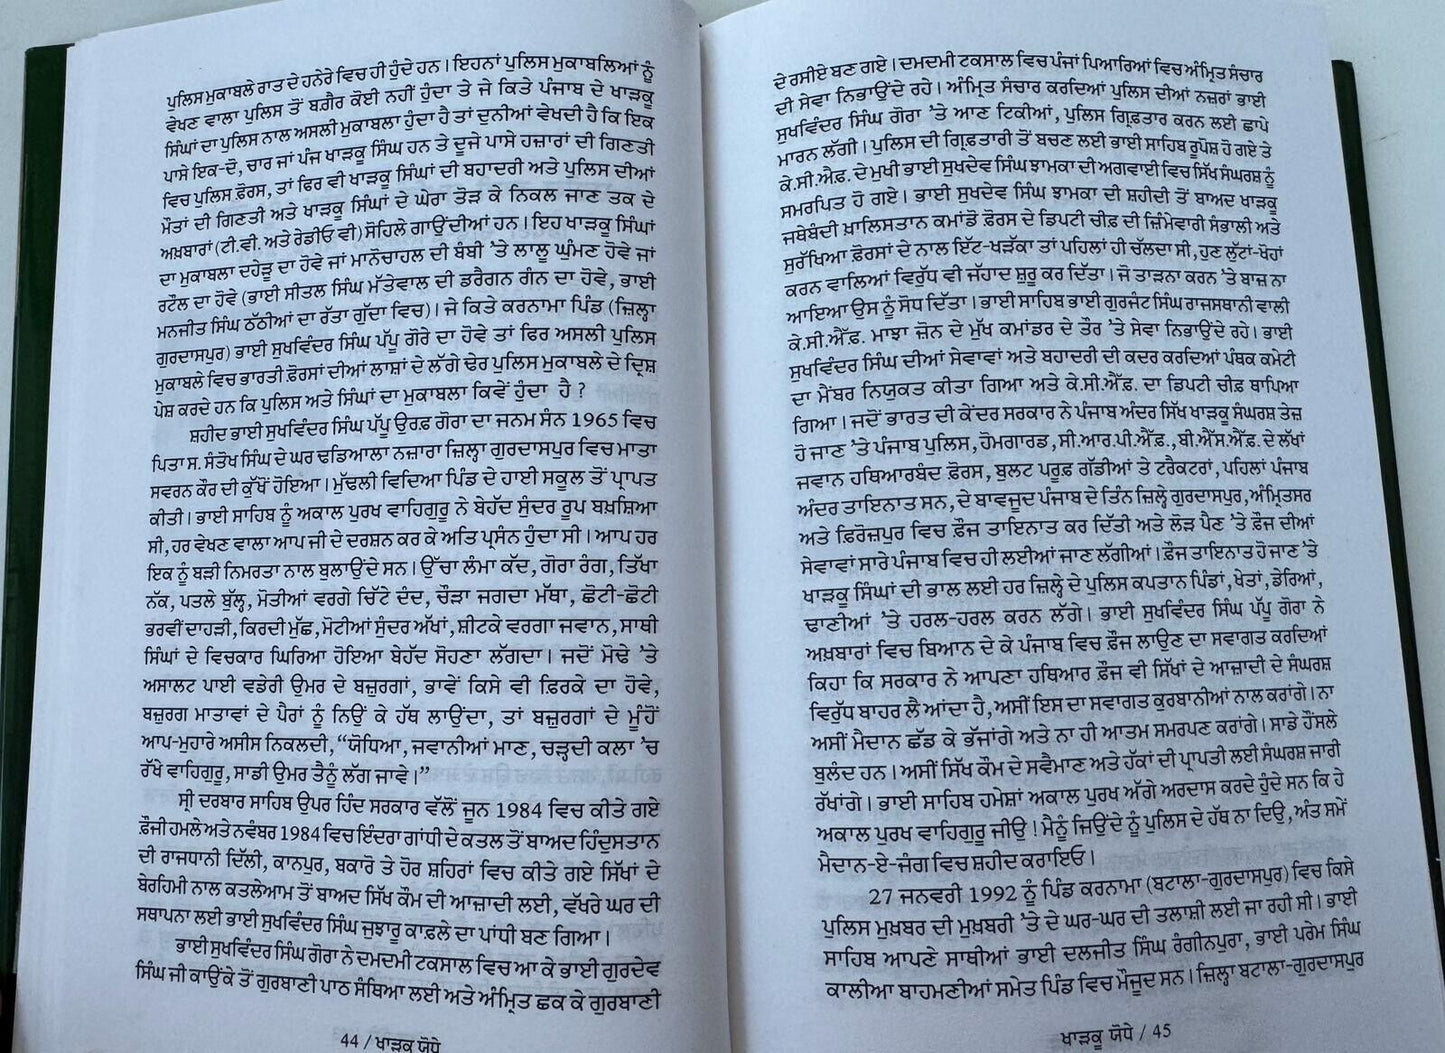 ਪੁਲਿਸ ਮੁਕਾਬਲੇ ਰਾਤ ਦੇ ਹਨੇਰੇ ਵਿਚ ਹੀ ਹੁੰਦੇ ਹਨ। ਇਹਨਾਂ ਪੁਲਿਸ ਮੁਕਾਬਲਿਆਂ ਨੂੰ
ਵੇਖਣ ਵਾਲਾ ਪੁਲਿਸ ਤੋਂ ਬਗੈਰ ਕੋਈ ਨਹੀਂ ਹੁੰਦਾ ਤੇ ਜੇ ਕਿਤੇ ਪੰਜਾਬ ਦੇ ਖਾੜਕੂ
ਸਿੰਘਾਂ ਦਾ ਪੁਲਿਸ ਨਾਲ ਅਸਲੀ ਮੁਕਾਬਲਾ ਹੁੰਦਾ ਹੈ ਤਾਂ ਦੁਨੀਆਂ ਵੇਖਦੀ ਹੈ ਕਿ ਇਕ
ਪਾਸੇ ਇਕ-ਦੋ, ਚਾਰ ਜਾਂ ਪੰਜ ਖਾੜਕੂ ਸਿੰਘ ਹਨ ਤੇ ਦੂਜੇ ਪਾਸੇ ਹਜ਼ਾਰਾਂ ਦੀ ਗਿਣਤੀ
ਵਿਚ ਪੁਲਿਸ ਫ਼ੋਰਸ, ਤਾਂ ਫਿਰ ਵੀ ਖਾੜਕੂ ਸਿੰਘਾਂ ਦੀ ਬਹਾਦਰੀ ਅਤੇ ਪੁਲਿਸ ਦੀਆਂ
ਮੌਤਾਂ ਦੀ ਗਿਣਤੀ ਅਤੇ ਖਾੜਕੂ ਸਿੰਘਾਂ ਦੇ ਘੇਰਾ ਤੋੜ ਕੇ ਨਿਕਲ ਜਾਣ ਤਕ ਦੇ
ਅਖ਼ਬਾਰਾਂ (ਟੀ.ਵੀ. ਅਤੇ ਰੇਡੀਓ ਵੀ) ਸੋਹਿਲੇ ਗਾਉਂਦੀਆਂ ਹਨ। ਇਹ ਖਾੜਕੂ ਸਿੰਘਾਂ
ਦਾ ਮੁਕਾਬਲਾ ਦਹੇੜੂ ਦਾ ਹੋਵੇ ਜਾਂ ਮਾਨੋਚਾਹਲ ਦੀ ਬੰਬੀ ’ਤੇ ਲਾਲੂ ਘੁੰਮਣ ਹੋਵੇ ਜਾਂ
ਰਟੌਲ ਦਾ ਹੋਵੇ (ਭਾਈ ਸੀਤਲ ਸਿੰਘ ਮੱਤੇਵਾਲ ਦੀ ਡਰੈਗਨ ਗੰਨ ਦਾ ਹੋਵੇ, ਭਾਈ
ਮਨਜੀਤ ਸਿੰਘ ਠੱਠੀਆਂ ਦਾ ਰੱਤਾ ਗੁੱਦਾ ਵਿਚ)। ਜੇ ਕਿਤੇ ਕਰਨਾਮਾ ਪਿੰਡ (ਜ਼ਿਲ੍ਹਾ
ਗੁਰਦਾਸਪੁਰ) ਭਾਈ ਸੁਖਵਿੰਦਰ ਸਿੰਘ ਪੱਪੂ ਗੋਰੇ ਦਾ ਹੋਵੇ ਤਾਂ ਫਿਰ ਅਸਲੀ ਪੁਲਿਸ
ਮੁਕਾਬਲੇ ਵਿਚ ਭਾਰਤੀ ਫ਼ੋਰਸਾਂ ਦੀਆਂ ਲਾਸ਼ਾਂ ਦੇ ਲੱਗੇ ਢੇਰ ਪੁਲਿਸ ਮੁਕਾਬਲੇ ਦੇ ਦ੍ਰਿਸ਼
ਪੇਸ਼ ਕਰਦੇ ਹਨ ਕਿ ਪੁਲਿਸ ਅਤੇ ਸਿੰਘਾਂ ਦਾ ਮੁਕਾਬਲਾ ਕਿਵੇਂ ਹੁੰਦਾ ਹੈ ?
ਸ਼ਹੀਦ ਭਾਈ ਸੁਖਵਿੰਦਰ ਸਿੰਘ ਪੱਪੂ ਉਰਫ਼ ਗੋਰਾ ਦਾ ਜਨਮ ਸੰਨ 1965 ਵਿਚ
ਪਿਤਾ ਸ. ਸੰਤੋਖ ਸਿੰਘ ਦੇ ਘਰ ਢਡਿਆਲਾ ਨਜ਼ਾਰਾ ਜ਼ਿਲ੍ਹਾ ਗੁਰਦਾਸਪੁਰ ਵਿਚ ਮਾਤਾ
ਸਵਰਨ ਕੌਰ ਦੀ ਕੁੱਖੋਂ ਹੋਇਆ। ਮੁੱਢਲੀ ਵਿਦਿਆ ਪਿੰਡ ਦੇ ਹਾਈ ਸਕੂਲ ਤੋਂ ਪ੍ਰਾਪਤ
ਕੀਤੀ। ਭਾਈ ਸਾਹਿਬ ਨੂੰ ਅਕਾਲ ਪੁਰਖ ਵਾਹਿਗੁਰੂ ਨੇ ਬੇਹੱਦ ਸੁੰਦਰ ਰੂਪ ਬਖ਼ਸ਼ਿਆ
ਸੀ, ਹਰ ਵੇਖਣ ਵਾਲਾ ਆਪ ਜੀ ਦੇ ਦਰਸ਼ਨ ਕਰ ਕੇ ਅਤਿ ਪ੍ਰਸੰਨ ਹੁੰਦਾ ਸੀ। ਆਪ ਹਰ
ਇਕ ਨੂੰ ਬੜੀ ਨਿਮਰਤਾ ਨਾਲ ਬੁਲਾਉਂਦੇ ਸਨ। ਉੱਚਾ ਲੰਮਾ ਕੱਦ, ਗੋਰਾ ਰੰਗ, ਤਿੱਖਾ
ਨੱਕ, ਪਤਲੇ ਬੁੱਲ੍ਹ, ਮੋਤੀਆਂ ਵਰਗੇ ਚਿੱਟੇ ਦੰਦ, ਚੌੜਾ ਜਗਦਾ ਮੱਥਾ, ਛੋਟੀ-ਛੋਟੀ
ਭਰਵੀਂ ਦਾਹੜੀ, ਕਿਰਦੀ ਮੁੱਛ, ਮੋਟੀਆਂ ਸੁੰਦਰ ਅੱਖਾਂ, ਸ਼ੀਟਕੇ ਵਰਗਾ ਜਵਾਨ, ਸਾਥੀ
ਸਿੰਘਾਂ ਦੇ ਵਿਚਕਾਰ ਘਿਰਿਆ ਹੋਇਆ ਬੇਹੱਦ ਸੋਹਣਾ ਲੱਗਦਾ। ਜਦੋਂ ਮੋਢੇ ’ਤੇ
ਅਸਾਲਟ ਪਾਈ ਵਡੇਰੀ ਉਮਰ ਦੇ ਬਜ਼ੁਰਗਾਂ, ਭਾਵੇਂ ਕਿਸੇ ਵੀ ਫ਼ਿਰਕੇ ਦਾ ਹੋਵੇ,
ਬਜ਼ੁਰਗ ਮਾਤਾਵਾਂ ਦੇ ਪੈਰਾਂ ਨੂੰ ਨਿਉਂ ਕੇ ਹੱਥ ਲਾਉਂਦਾ, ਤਾਂ ਬਜ਼ੁਰਗਾਂ ਦੇ ਮੂੰਹੋਂ
ਆਪ-ਮੁਹਾਰੇ ਅਸੀਸ ਨਿਕਲਦੀ, “ਯੋਧਿਆ, ਜਵਾਨੀਆਂ ਮਾਣ, ਚੜ੍ਹਦੀ ਕਲਾ ’ਚ
ਰੱਖੇ ਵਾਹਿਗੁਰੂ, ਸਾਡੀ ਉਮਰ ਤੈਨੂੰ ਲੱਗ ਜਾਵੇ।”
ਸ੍ਰੀ ਦਰਬਾਰ ਸਾਹਿਬ ਉਪਰ ਹਿੰਦ ਸਰਕਾਰ ਵੱਲੋਂ ਜੂਨ 1984 ਵਿਚ ਕੀਤੇ ਗਏ
ਫ਼ੌਜੀ ਹਮਲੇ ਅਤੇ ਨਵੰਬਰ 1984 ਵਿਚ ਇੰਦਰਾ ਗਾਂਧੀ ਦੇ ਕਤਲ ਤੋਂ ਬਾਅਦ ਹਿੰਦੁਸਤਾਨ
ਦੀ ਰਾਜਧਾਨੀ ਦਿੱਲੀ, ਕਾਨਪੁਰ, ਬਕਾਰੋ ਤੇ ਹੋਰ ਸ਼ਹਿਰਾਂ ਵਿਚ ਕੀਤੇ ਗਏ ਸਿੱਖਾਂ ਦੇ
ਬੇਰਹਿਮੀ ਨਾਲ ਕਤਲੇਆਮ ਤੋਂ ਬਾਅਦ ਸਿੱਖ ਕੌਮ ਦੀ ਆਜ਼ਾਦੀ ਲਈ, ਵੱਖਰੇ ਘਰ ਦੀ
ਸਥਾਪਨਾ ਲਈ ਭਾਈ ਸੁਖਵਿੰਦਰ ਸਿੰਘ ਜੁਝਾਰੂ ਕਾਫ਼ਲੇ ਦਾ ਪਾਂਧੀ ਬਣ ਗਿਆ।
ਭਾਈ ਸੁਖਵਿੰਦਰ ਸਿੰਘ ਗੋਰਾ ਨੇ ਦਮਦਮੀ ਟਕਸਾਲ ਵਿਚ ਆ ਕੇ ਭਾਈ ਗੁਰਦੇਵ
ਸਿੰਘ ਜੀ ਕਾਉਂਕੇ ਤੋਂ ਗੁਰਬਾਣੀ ਪਾਠ ਸੰਥਿਆ ਲਈ ਅਤੇ ਅੰਮ੍ਰਿਤ ਛਕ ਕੇ ਗੁਰਬਾਣੀ
44 / ਖਾੜਕੂ ਯੋਧੇ
ਦੇ ਰਸੀਏ ਬਣ ਗਏ। ਦਮਦਮੀ ਟਕਸਾਲ ਵਿਚ ਪੰਜਾਂ ਪਿਆਰਿਆਂ ਵਿਚ ਅੰਮ੍ਰਿਤ ਸੰਚਾਰ
ਦੀ ਸੇਵਾ ਨਿਭਾਉਂਦੇ ਰਹੇ। ਅੰਮ੍ਰਿਤ ਸੰਚਾਰ ਕਰਦਿਆਂ ਪੁਲਿਸ ਦੀਆਂ ਨਜ਼ਰਾਂ ਭਾਈ
ਸੁਖਵਿੰਦਰ ਸਿੰਘ ਗੋਰਾ ’ਤੇ ਆਣ ਟਿਕੀਆਂ, ਪੁਲਿਸ ਗ੍ਰਿਫ਼ਤਾਰ ਕਰਨ ਲਈ ਛਾਪੇ
ਮਾਰਨ ਲੱਗੀ। ਪੁਲਿਸ ਦੀ ਗ੍ਰਿਫ਼ਤਾਰੀ ਤੋਂ ਬਚਣ ਲਈ ਭਾਈ ਸਾਹਿਬ ਰੂਪੋਸ਼ ਹੋ ਗਏ ਤੇ
ਕੇ.ਸੀ.ਐਫ਼. ਦੇ ਮੁਖੀ ਭਾਈ ਸੁਖਦੇਵ ਸਿੰਘ ਝਾਮਕਾ ਦੀ ਅਗਵਾਈ ਵਿਚ ਸਿੱਖ ਸੰਘਰਸ਼ ਨੂੰ
ਸਮਰਪਿਤ ਹੋ ਗਏ। ਭਾਈ ਸੁਖਦੇਵ ਸਿੰਘ ਝਾਮਕਾ ਦੀ ਸ਼ਹੀਦੀ ਤੋਂ ਬਾਅਦ ਖਾੜਕੂ
ਜਥੇਬੰਦੀ ਖ਼ਾਲਿਸਤਾਨ ਕਮਾਂਡੋ ਫ਼ੋਰਸ ਦੇ ਡਿਪਟੀ ਚੀਫ਼ ਦੀ ਜ਼ਿੰਮੇਵਾਰੀ ਸੰਭਾਲੀ ਅਤੇ
ਸੁਰੱਖਿਆ ਫ਼ੋਰਸਾਂ ਦੇ ਨਾਲ ਇੱਟ-ਖੜੱਕਾ ਤਾਂ ਪਹਿਲਾਂ ਹੀ ਚੱਲਦਾ ਸੀ, ਹੁਣ ਲੁੱਟਾਂ-ਖੋਹਾਂ
ਕਰਨ ਵਾਲਿਆਂ ਵਿਰੁੱਧ ਵੀ ਜੱਹਾਦ ਸ਼ੁਰੂ ਕਰ ਦਿੱਤਾ। ਜੋ ਤਾੜਨਾ ਕਰਨ ’ਤੇ ਬਾਜ਼ ਨਾ
ਆਇਆ ਉਸ ਨੂੰ ਸੋਧ ਦਿੱਤਾ। ਭਾਈ ਸਾਹਿਬ ਭਾਈ ਗੁਰਜੰਟ ਸਿੰਘ ਰਾਜਸਥਾਨੀ ਵਾਲੀ
ਕੇ.ਸੀ.ਐੱਫ਼. ਮਾਝਾ ਜ਼ੋਨ ਦੇ ਮੁੱਖ ਕਮਾਂਡਰ ਦੇ ਤੌਰ ’ਤੇ ਸੇਵਾ ਨਿਭਾਉਂਦੇ ਰਹੇ। ਭਾਈ
ਸੁਖਵਿੰਦਰ ਸਿੰਘ ਦੀਆਂ ਸੇਵਾਵਾਂ ਅਤੇ ਬਹਾਦਰੀ ਦੀ ਕਦਰ ਕਰਦਿਆਂ ਪੰਥਕ ਕਮੇਟੀ
ਦਾ ਮੈਂਬਰ ਨਿਯੁਕਤ ਕੀਤਾ ਗਿਆ ਅਤੇ ਕੇ.ਸੀ.ਐੱਫ਼. ਦਾ ਡਿਪਟੀ ਚੀਫ਼ ਥਾਪਿਆ
ਗਿਆ। ਜਦੋਂ ਭਾਰਤ ਦੀ ਕੇਂਦਰ ਸਰਕਾਰ ਨੇ ਪੰਜਾਬ ਅੰਦਰ ਸਿੱਖ ਖਾੜਕੂ ਸੰਘਰਸ਼ ਤੇਜ਼
ਹੋ ਜਾਣ ’ਤੇ ਪੰਜਾਬ ਪੁਲਿਸ, ਹੋਮਗਾਰਡ, ਸੀ.ਆਰ.ਪੀ.ਐੱਫ਼., ਬੀ.ਐੱਸ.ਐੱਫ਼. ਦੇ ਲੱਖਾਂ
ਜਵਾਨ ਹਥਿਆਰਬੰਦ ਫ਼ੋਰਸ, ਬੁਲਟ ਪਰੂਫ਼ ਗੱਡੀਆਂ ਤੇ ਟਰੈਕਟਰਾਂ, ਪਹਿਲਾਂ ਪੰਜਾਬ
ਅੰਦਰ ਤਾਇਨਾਤ ਸਨ, ਦੇ ਬਾਵਜੂਦ ਪੰਜਾਬ ਦੇ ਤਿੰਨ ਜ਼ਿਲ੍ਹੇ ਗੁਰਦਾਸਪੁਰ, ਅੰਮ੍ਰਿਤਸਰ
ਅਤੇ ਫ਼ਿਰੋਜ਼ਪੁਰ ਵਿਚ ਫ਼ੌਜ ਤਾਇਨਾਤ ਕਰ ਦਿੱਤੀ ਅਤੇ ਲੋੜ ਪੈਣ ’ਤੇ ਫ਼ੌਜ ਦੀਆਂ
ਸੇਵਾਵਾਂ ਸਾਰੇ ਪੰਜਾਬ ਵਿਚ ਹੀ ਲਈਆਂ ਜਾਣ ਲੱਗੀਆਂ। ਫ਼ੌਜ ਤਾਇਨਾਤ ਹੋ ਜਾਣ ’ਤੇ
ਖਾੜਕੂ ਸਿੰਘਾਂ ਦੀ ਭਾਲ ਲਈ ਹਰ ਜ਼ਿਲ੍ਹੇ ਦੇ ਪੁਲਿਸ ਕਪਤਾਨ ਪਿੰਡਾਂ, ਖੇਤਾਂ, ਡੇਰਿਆਂ,
ਢਾਣੀਆਂ ’ਤੇ ਹਰਲ-ਹਰਲ ਕਰਨ ਲੱਗੇ। ਭਾਈ ਸੁਖਵਿੰਦਰ ਸਿੰਘ ਪੱਪੂ ਗੋਰਾ ਨੇ
ਅਖ਼ਬਾਰਾਂ ਵਿਚ ਬਿਆਨ ਦੇ ਕੇ ਪੰਜਾਬ ਵਿਚ ਫ਼ੌਜ ਲਾਉਣ ਦਾ ਸਵਾਗਤ ਕਰਦਿਆਂ
ਕਿਹਾ ਕਿ ਸਰਕਾਰ ਨੇ ਆਪਣਾ ਹਥਿਆਰ ਫ਼ੌਜ ਵੀ ਸਿੱਖਾਂ ਦੇ ਆਜ਼ਾਦੀ ਦੇ ਸੰਘਰਸ਼
ਵਿਰੁੱਧ ਬਾਹਰ ਲੈ ਆਂਦਾ ਹੈ, ਅਸੀਂ ਇਸ ਦਾ ਸਵਾਗਤ ਕੁਰਬਾਨੀਆਂ ਨਾਲ ਕਰਾਂਗੇ। ਨਾ
ਅਸੀਂ ਮੈਦਾਨ ਛੱਡ ਕੇ ਭੱਜਾਂਗੇ ਅਤੇ ਨਾ ਹੀ ਆਤਮ ਸਮਰਪਣ ਕਰਾਂਗੇ। ਸਾਡੇ ਹੌਂਸਲੇ
ਬੁਲੰਦ ਹਨ। ਅਸੀਂ ਸਿੱਖ ਕੌਮ ਦੇ ਸਵੈਮਾਣ ਅਤੇ ਹੱਕਾਂ ਦੀ ਪ੍ਰਾਪਤੀ ਲਈ ਸੰਘਰਸ਼ ਜਾਰੀ
ਰੱਖਾਂਗੇ। ਭਾਈ ਸਾਹਿਬ ਹਮੇਸ਼ਾਂ ਅਕਾਲ ਪੁਰਖ ਅੱਗੇ ਅਰਦਾਸ ਕਰਦੇ ਹੁੰਦੇ ਸਨ ਕਿ ਹੇ
ਅਕਾਲ ਪੁਰਖ ਵਾਹਿਗੁਰੂ ਜੀਉ ! ਮੈਨੂੰ ਜਿਉਂਦੇ ਨੂੰ ਪੁਲਿਸ ਦੇ ਹੱਥ ਨਾ ਦਿਉ, ਅੰਤ ਸਮੇਂ
ਮੈਦਾਨ-ਏ-ਜੰਗ ਵਿਚ ਸ਼ਹੀਦ ਕਰਾਇਓ।
27 ਜਨਵਰੀ 1992 ਨੂੰ ਪਿੰਡ ਕਰਨਾਮਾ (ਬਟਾਲਾ-ਗੁਰਦਾਸਪੁਰ) ਵਿਚ ਕਿਸੇ
ਪੁਲਿਸ ਮੁਖ਼ਬਰ ਦੀ ਮੁਖ਼ਬਰੀ ’ਤੇ ਦੇ ਘਰ-ਘਰ ਦੀ ਤਲਾਸ਼ੀ ਲਈ ਜਾ ਰਹੀ ਸੀ। ਭਾਈ
ਸਾਹਿਬ ਆਪਣੇ ਸਾਥੀਆਂ ਭਾਈ ਦਲਜੀਤ ਸਿੰਘ ਰੰਗੀਨਪੁਰਾ, ਭਾਈ ਪਰੇਮ ਸਿੰਘ
ਕਾਲੀਆ ਬਾਹਮਣੀਆਂ ਸਮੇਤ ਪਿੰਡ ਵਿਚ ਮੌਜੂਦ ਸਨ। ਜ਼ਿਲ੍ਹਾ ਬਟਾਲਾ-ਗੁਰਦਾਸਪੁਰ
ਖਾੜਕੂ ਯੋਧੇ / 45